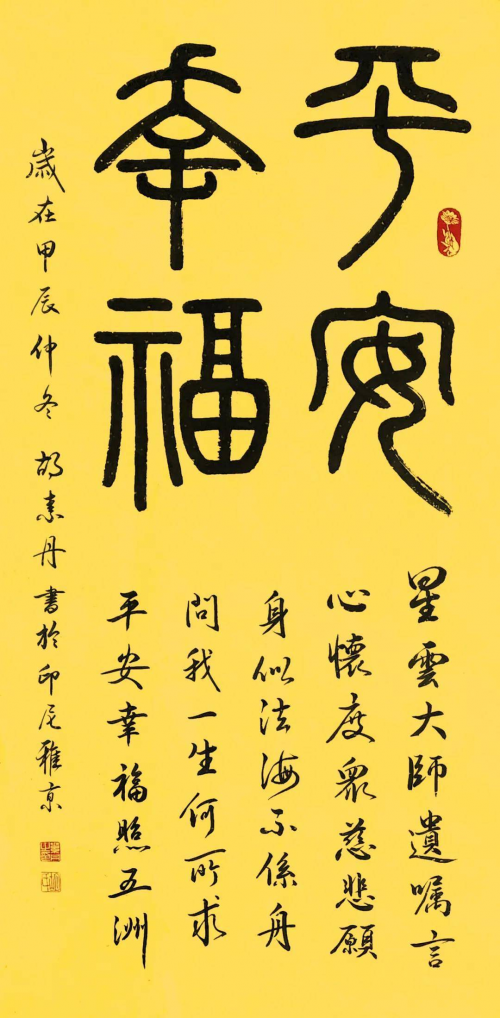 平安
幸福
星雲大師遺嘱言
心懷度眾慈悲願
身似法海不係舟
問我一生何所求
平安幸福照五洲
歲在甲辰仲冬 胡素丹書於印尼雅京